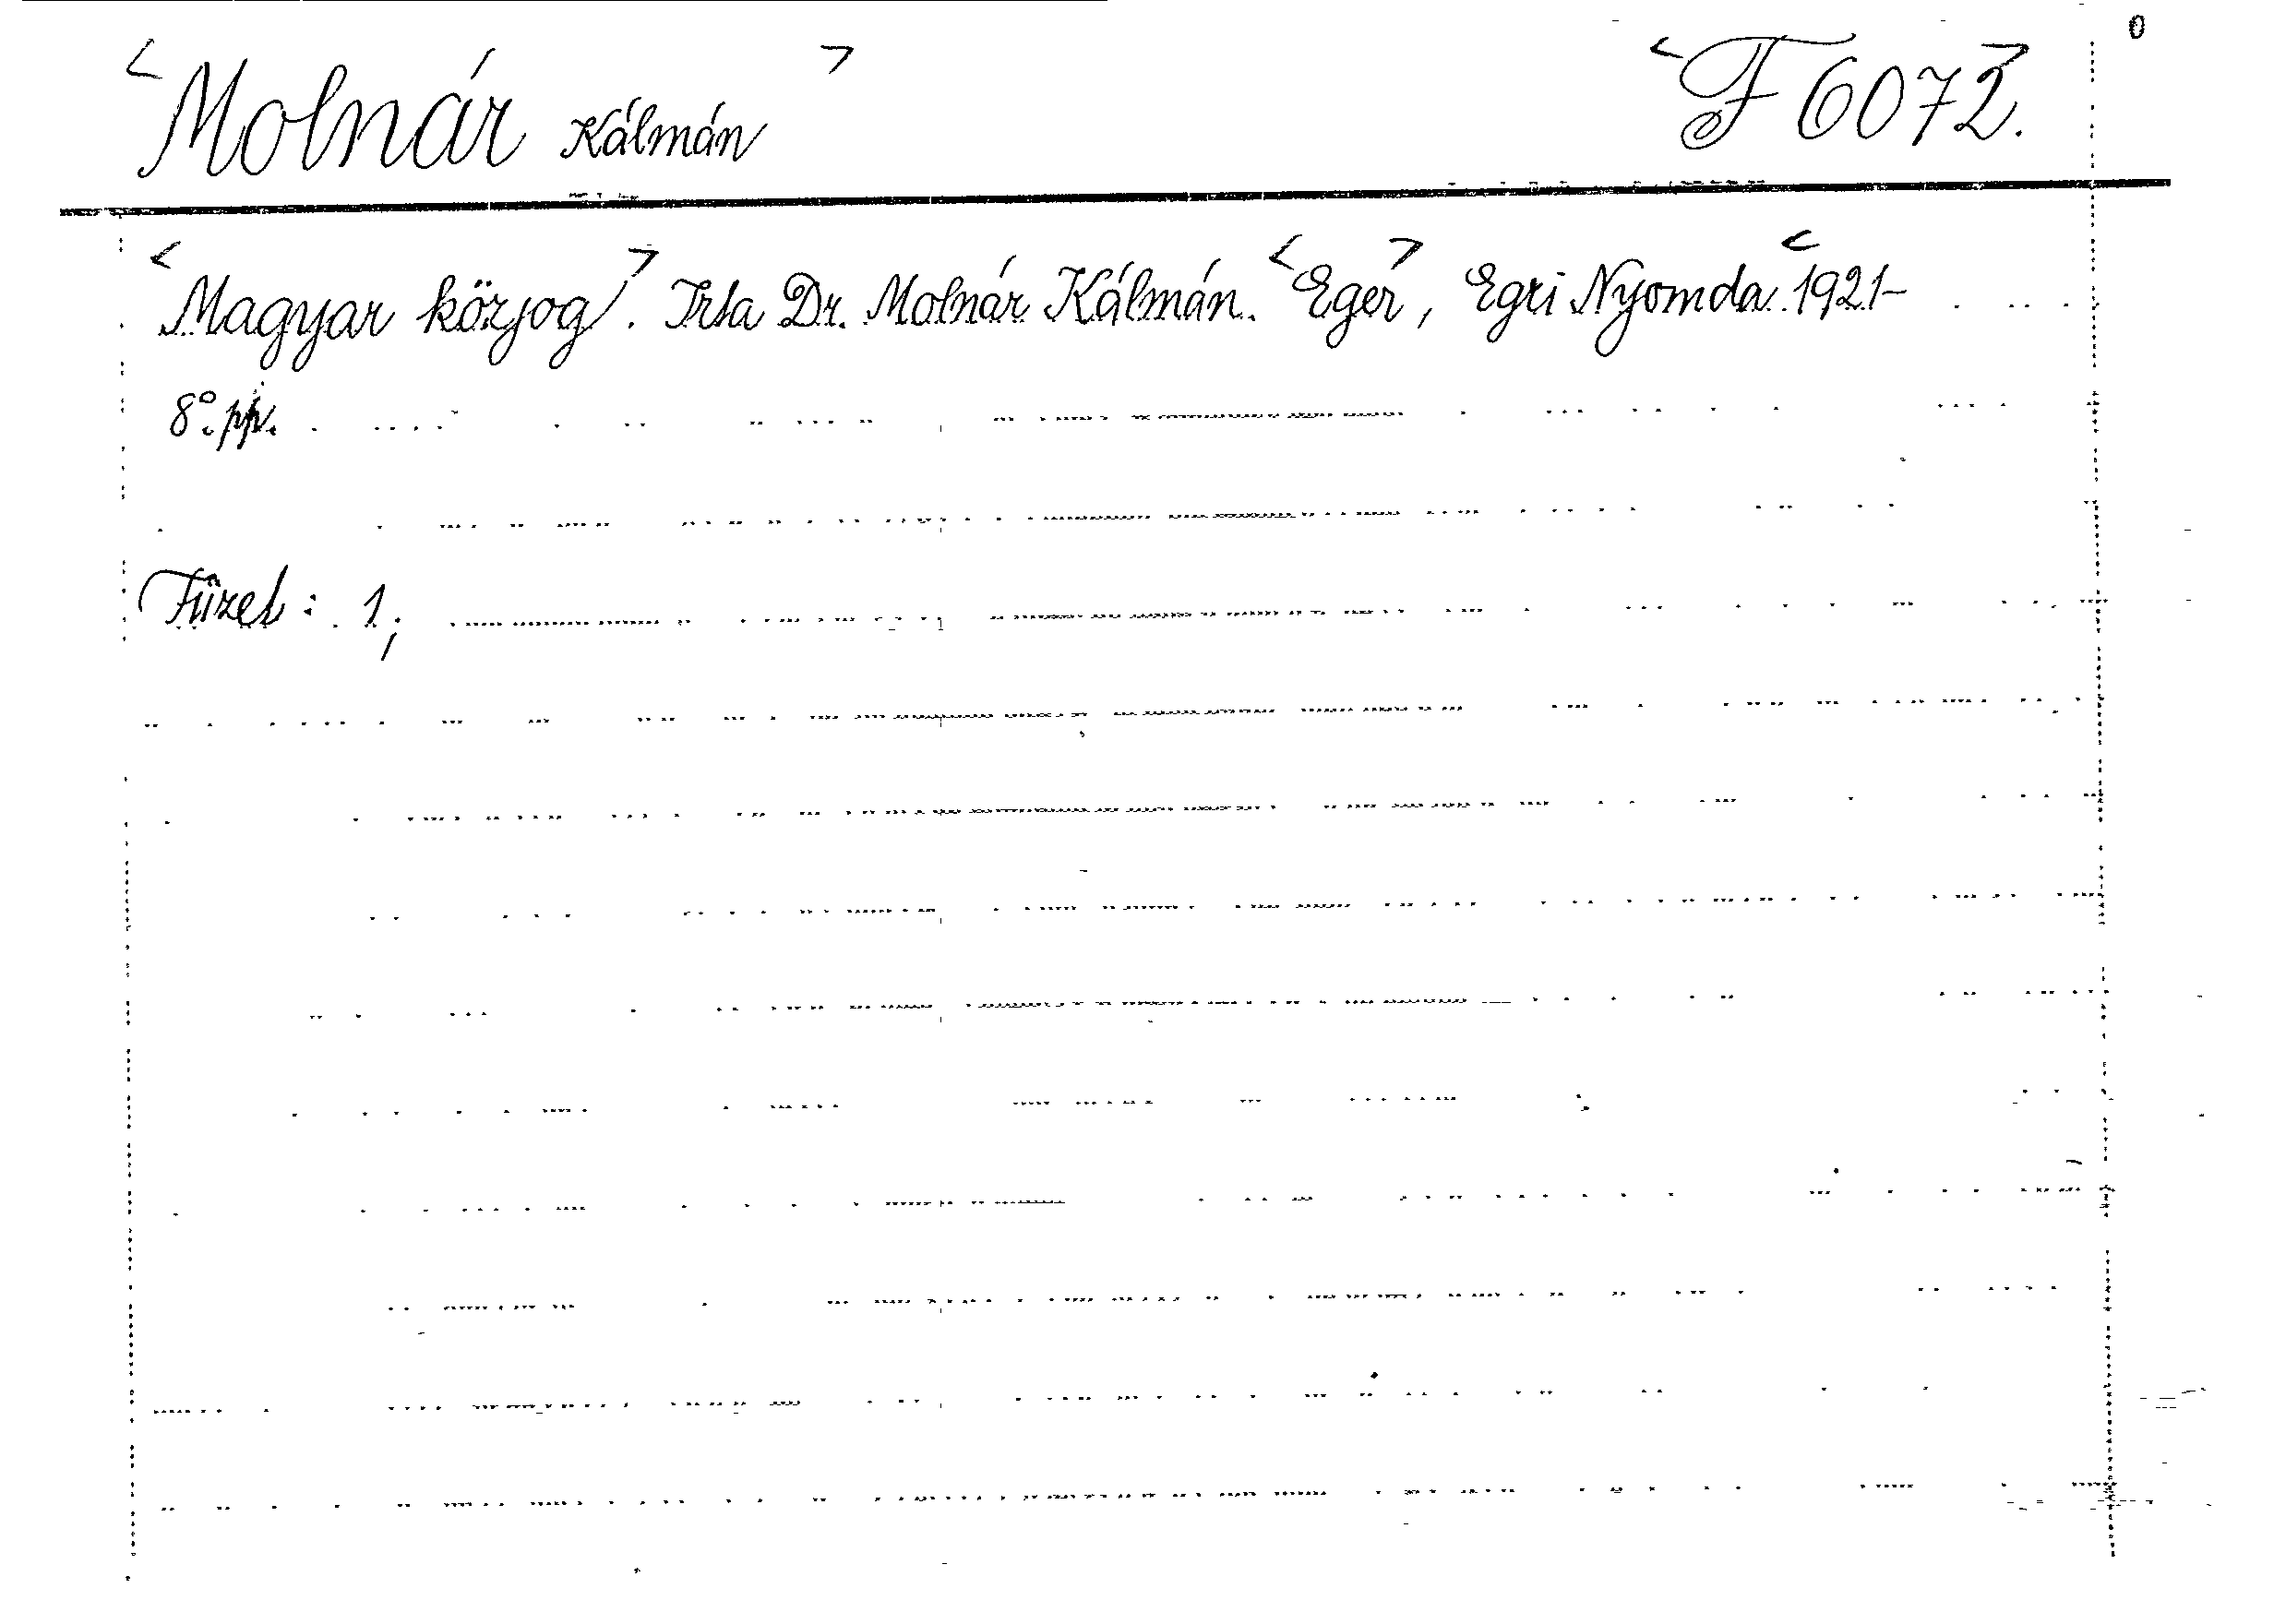 <Molnár Kálmán> <F 6072.>
0
<Magyar közjog>. Irta Dr. Molnár Kálmán. <Eger>, Egri Nyomda <1921-
8°. pp.
Füzet: 1;